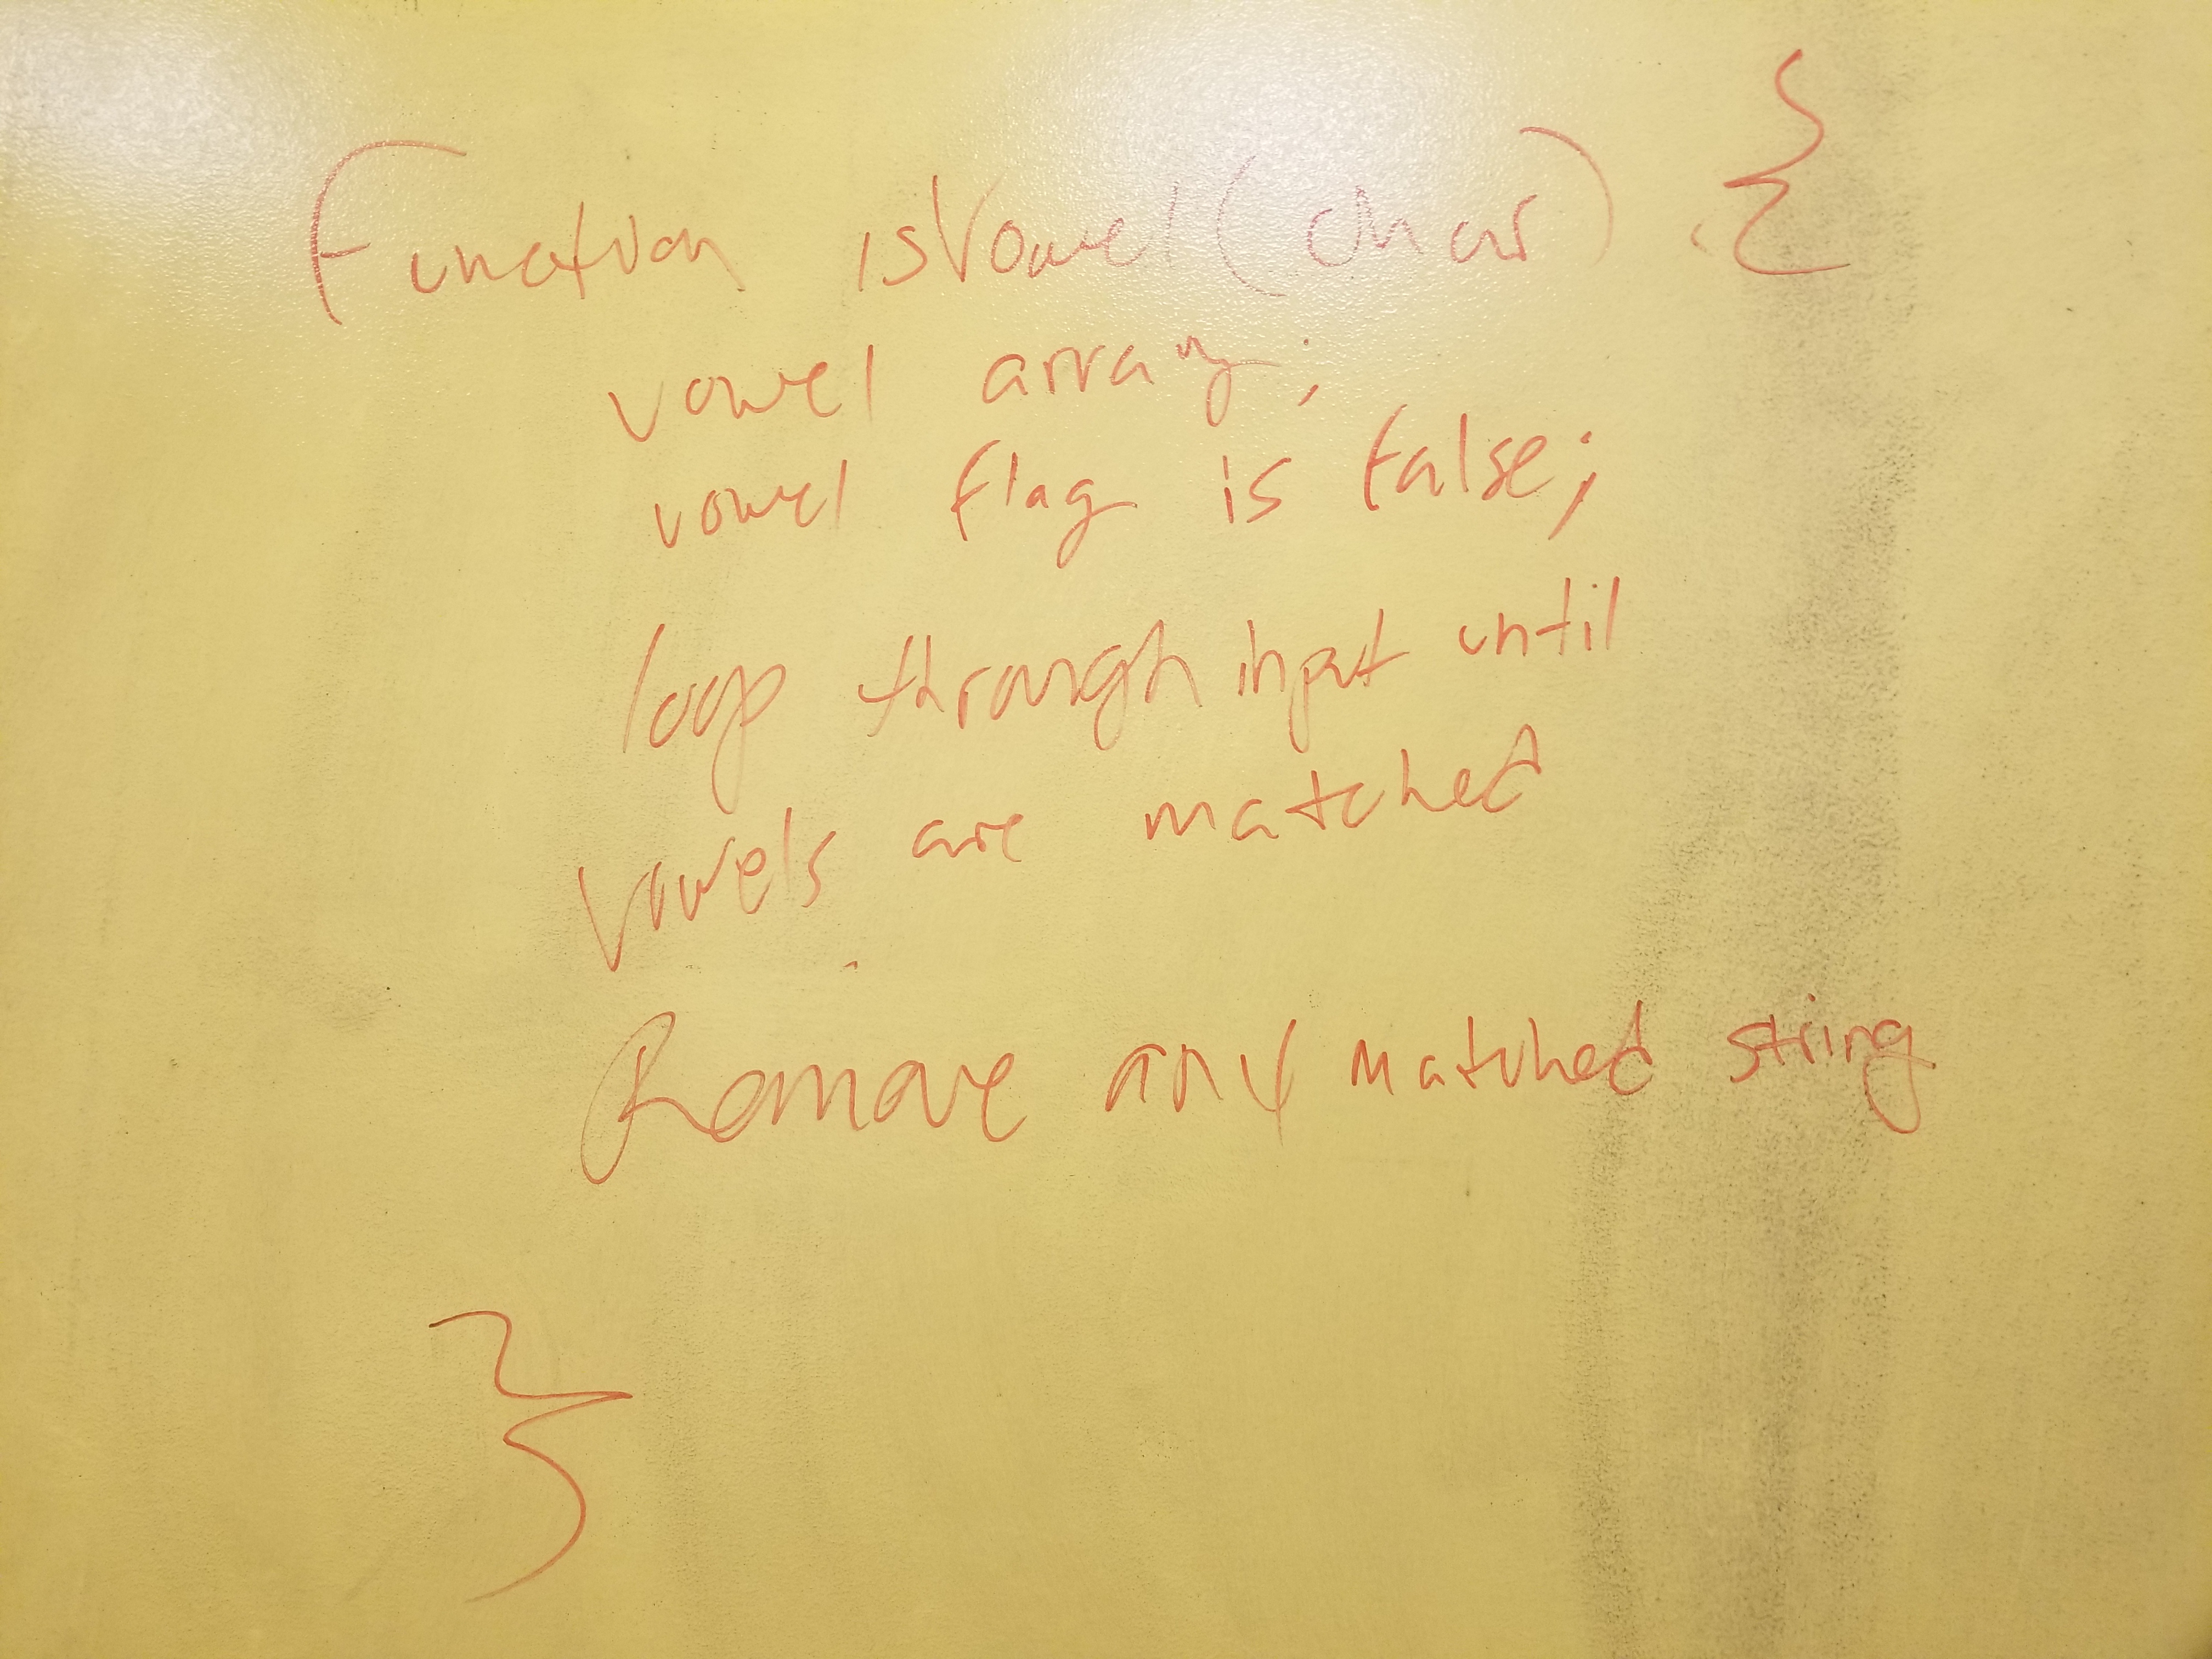 Function isVowel(char) {
vowel array;
vowel flag is false;
loop through input until
vowels are matched
Remove any matched string
}